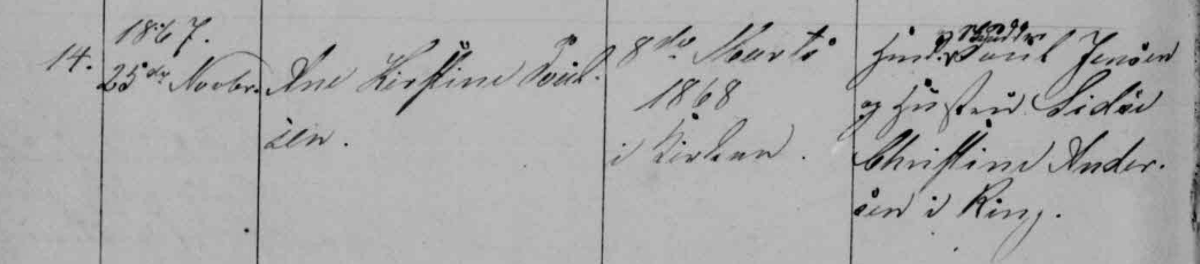 14.
1867.
25de Novbr.
Ane Kirstine Poul-
sen.
8de Marts
1868
i Kirken.
Huusm. Poul Jensen
og Hustru Sidse
Christine Ander-
sen i Ring.